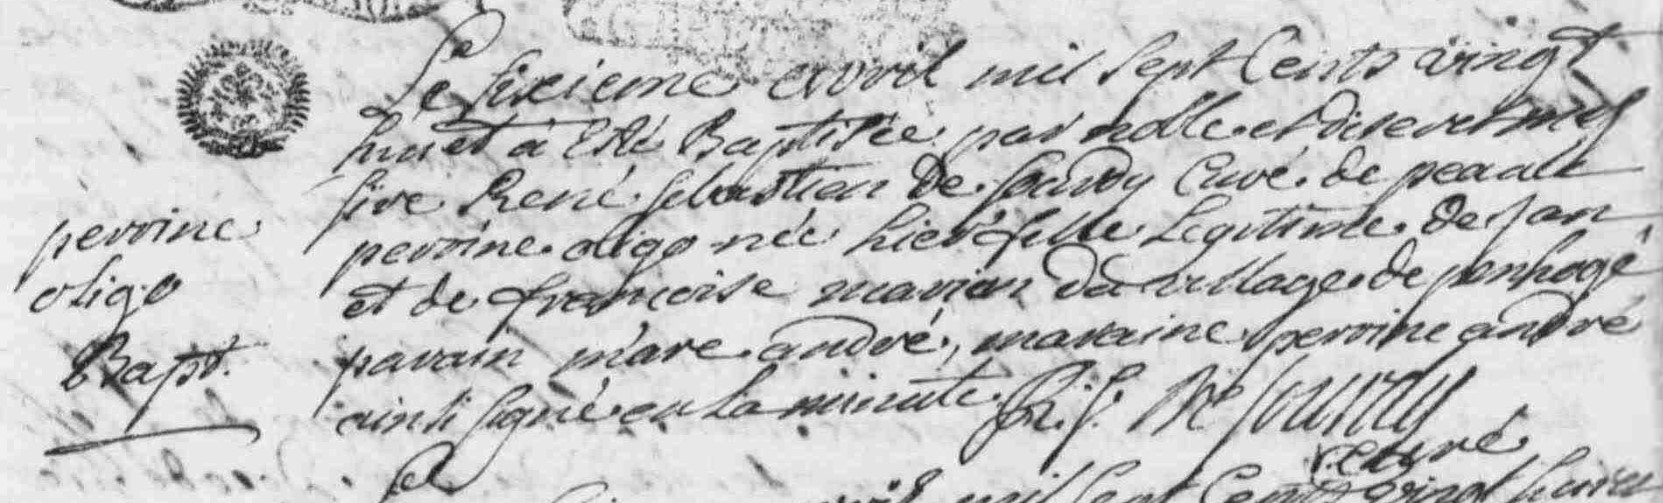 Le sixieme avril mil sept Cents vingt
huict à Esté Baptisée par noble et discret mes
sire René sebastien De Gourdy Curé de peaule
perrine oligo née hier fille Legitime de Jan
et de francoise marion du village de penhogé
parain marc andré, maraine perrine andré
ainsi signé en La minute R. S. De Gourdy
curé
perrine
oligo
Bapt.
mil sept Cents vingt huict